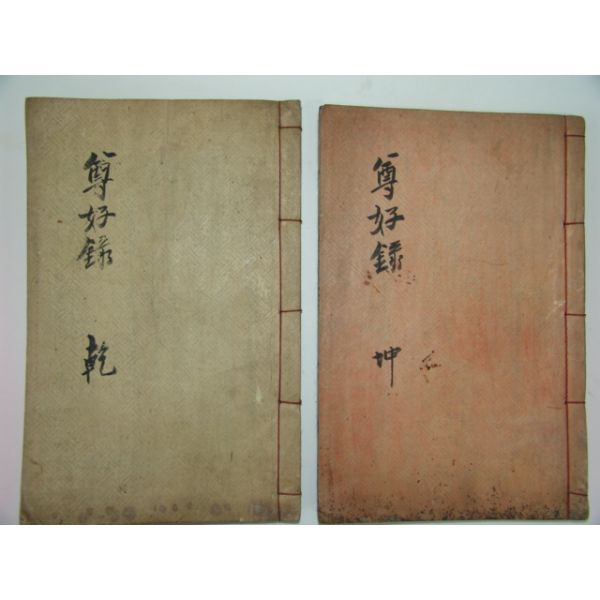 尊好錄 乾
尊好錄 坤